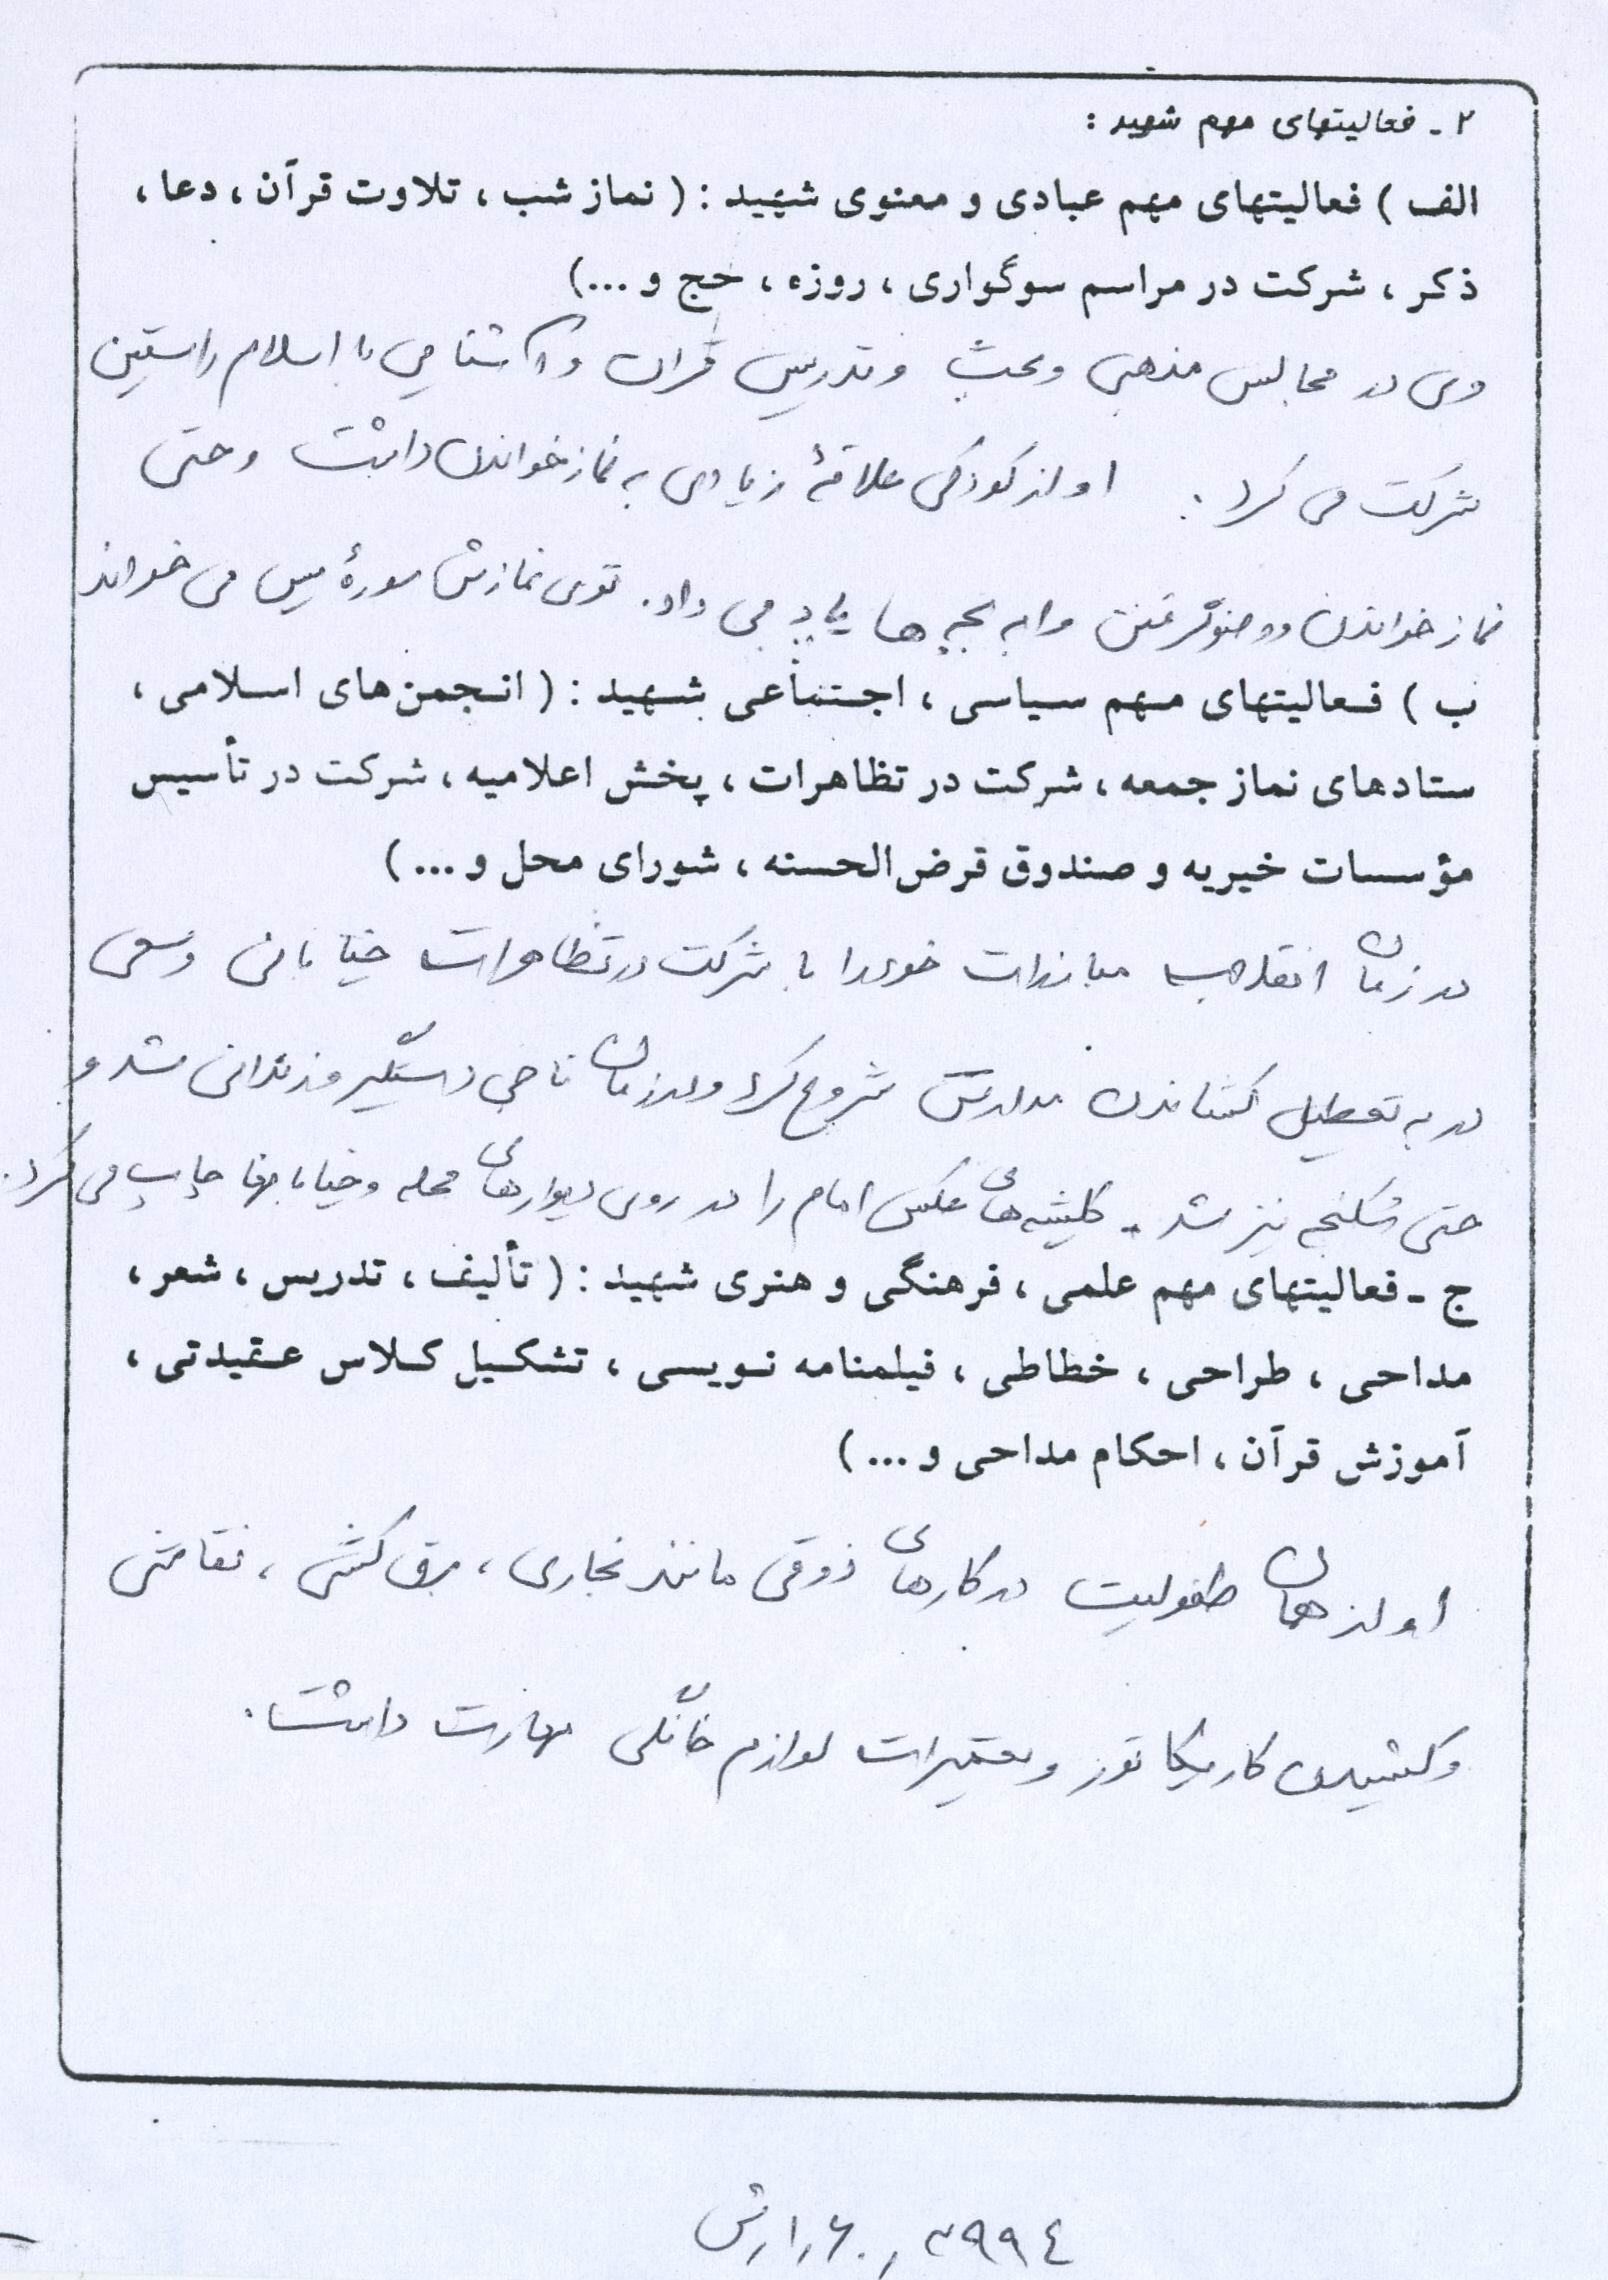 ۲ ـ فعالیتهای مهم شهید :
الف ) فعالیتهای مهم عبادی و معنوی شهید : ( نماز شب ، تلاوت قرآن ، دعا ،
ذکر ، شرکت در مراسم سوگواری ، روزه ، حج و ...)
وی در مجالس مذهبی و بحث و تدریس قرآن و آشنایی با اسلام راستین
شرکت می کرد . او از کودکی علاقهٔ زیادی به نماز خواندن داشت و حتی
نماز خواندن و وضو گرفتن را به بچه ها یاد می داد. توی نمازش سورهٔ یس می خواند
ب ) فعالیتهای مهم سیاسی ، اجتماعی شهید : ( انجمن‌های اسلامی ،
ستادهای نماز جمعه ، شرکت در تظاهرات ، پخش اعلامیه ، شرکت در تأسیس
مؤسسات خیریه و صندوق قرض‌الحسنه ، شورای محل و ... )
در زمان انقلاب مبارزات خود را با شرکت در تظاهرات خیابانی و سعی
در به تعطیل کشاندن مدارس شروع کرد و در زمان شاه دستگیر و زندانی شد و
حتی شکنجه نیز شد . کلیشه های عکس امام را در روی دیوارهای محله و خیابانها چاپ می کرد.
ج ـ فعالیتهای مهم علمی ، فرهنگی و هنری شهید : ( تألیف ، تدریس ، شعر ،
مداحی ، طراحی ، خطاطی ، فیلمنامه نویسی ، تشکیل کلاس عقیدتی ،
آموزش قرآن ، احکام مداحی و ... )
او از همان طفولیت در کارهای ذوقی مانند نجاری ، برق کشی ، نقاشی
و کشیدن کاریکاتور و تعمیرات لوازم خانگی مهارت داشت .